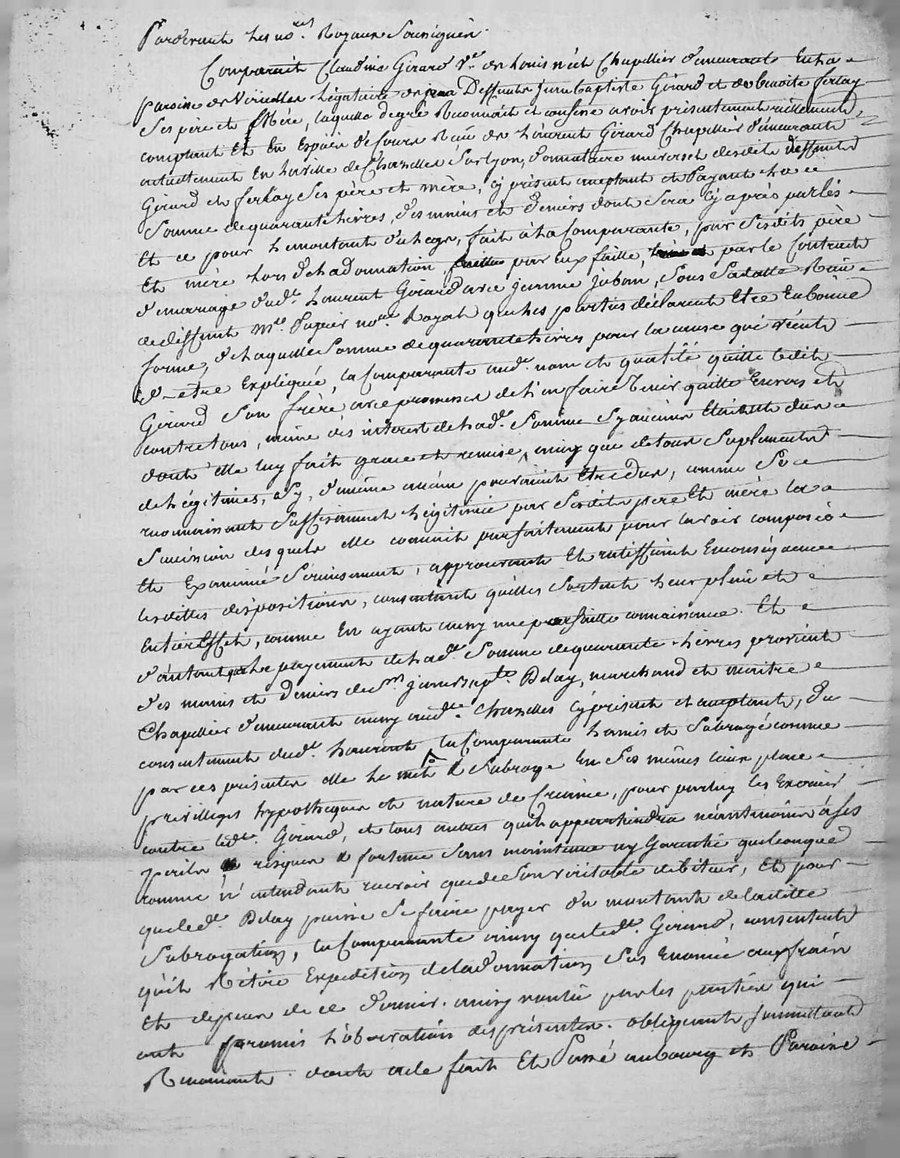 Pardevant les no.res Royaux Sousignés
Comparait Claudine Girard v.e de Louis Chapellier demeurante en la
paroise de Viricelles légataire de Deffunts Jean Baptiste Girard et de benoite ferlay
Ses père et Mère, laquelle de gré Reconnait et confesse avoir présentement réellement
comptant Et en Espèce de Cours Reçû de Laurent Girard Chapellier demeurant
actuellement En la ville de Chazelles Sur lyon, donnataire universel desdits deffunts
Girard et ferlay Ses père et mère, cy présent acceptant et Payant la
Somme de quarante livres, des mains et deniers dont Sera cy après parlés
Et ce pour le montant du legs, fait à la Comparante, par Sesdits père
Et mère lors de la donnation par Eux faitte, par le Contract
de mariage dud.t Laurent Girard avec jeanne , Sous Sa datte Reçu
de deffunt M.re Papier no.re Royal que les parties déclarent Etre En bonne
forme, de laquelle Somme de quarante livres pour la cause qui vient
d'etre Expliquée, la Comparante aud. nom et qualité quitte ledit
Girard Son frère avec promesse de l'en faire tenir quitte Envers et
contre tous, même des interest de lad.e Somme Sy aucuns Etaient dus
dont elle luy fait grace et remise, ainsy que de tour Suplement
de légitimes, Sy, de même aucun pouvaient Etre dus, comme Se
reconnaissant Suffisament légitimée par Sesdits père Et mère la
Sucession desquels elle connait parfaitement pour lavoir composée
Et Examinée Serieusement, approuvant Et ratiffiant En conséquence
lesdittes dispositions, consentant quelles Sortent leur plein et
Entier Effet, comme En ayant ainsy une parfaitte connaissance. Et
d'autant que le payement de lad.e Somme de quarante livres provient
des mains et deniers de S.r jean Bapt.e Délay, marchand et maitre
Chapellier demeurant aussy aud.t Chazelles Cy présent et acceptant, du
consentement dud.t Laurent, la Comparante l'a mis et Subrogé comme
par ces présentes elle le met & Subroge En Ses mêmes lieux place
privillèges hypotheques et nature de Créance, pour par luy les Exercer
contre led.t Girard, et tous autres qu'il appartiendra néantmoins à Ses
perils risques & fortune Sans maintenue ny Garantie quelconque
comme n'entendant recevoir que de Son véritable débiteur, Et pour
que led.t Délay puisse Se faire payer du montant de laditte
Subrogation, la Comparante ainsy que led.t Girard, consentent
qu'il Rétire Expedition de la donnation Sus Enoncée aux frais
Et dépens de ce dernier. ainsy par les parties qui
ont promis l'observation des présentes. obligeant Soumettant
Renonçant. dont acte fait Et Passé au bourg et Paroise